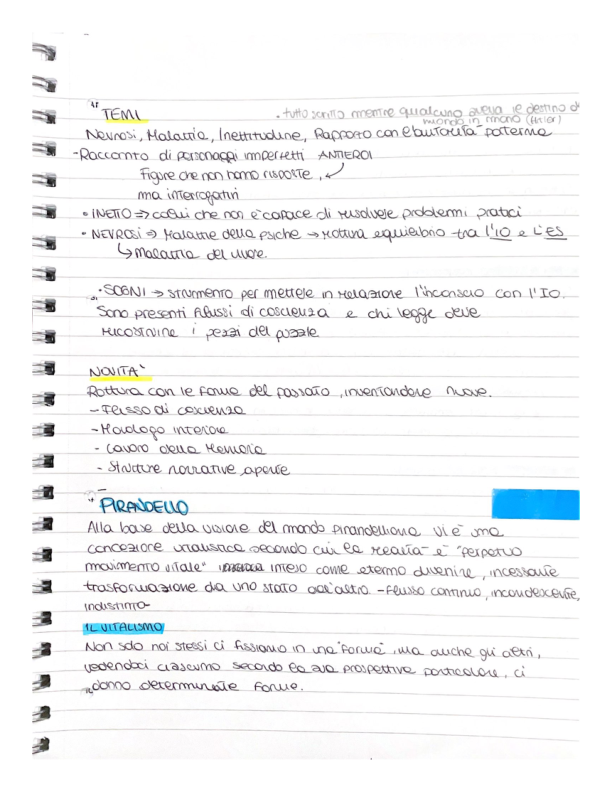 TEMI
• tutto scritto mentre qualcuno aveva le destino d
mondo in mano
Nevrosi, Malattia, Inettitudine, Rapporto con l'autorità paterna
-Racconto di personaggi imperfetti ANTIEROI
Figure che non hanno risposte,
ma interrogativi
• INETTO => colui che non è capace di risolvere problemi pratici
• NEVROSI => Malattie della psiche → rottura equilibrio tra l'IO e L'ES
↳ Malattia del vivere.
• SOGNI → strumento per mettere in relazione l'inconscio con l'IO.
Sono presenti flussi di coscienza e chi legge deve
ricostruire i pezzi del puzzle
NOVITA`
Rottura con le forme del passato, inventandone nuove.
- Flusso di coscienza
- Monologo interiore
- Lavoro della Memoria
- Strutture narrative aperte
PIRANDELLO
Alla base della visione del mondo Pirandelliana vi è una
concezione vitalistica secondo cui la realtà è "perpetuo
movimento vitale" inteso come eterno divenire, incessante
trasformazione da uno stato all'altro - flusso continuo, incandescente,
indistinto-
IL VITALISMO
Non solo noi stessi ci fissiamo in una "forma", ma anche gli altri,
vedendoci ciascuno secondo la sua prospettiva particolare, ci
danno determinate forme.